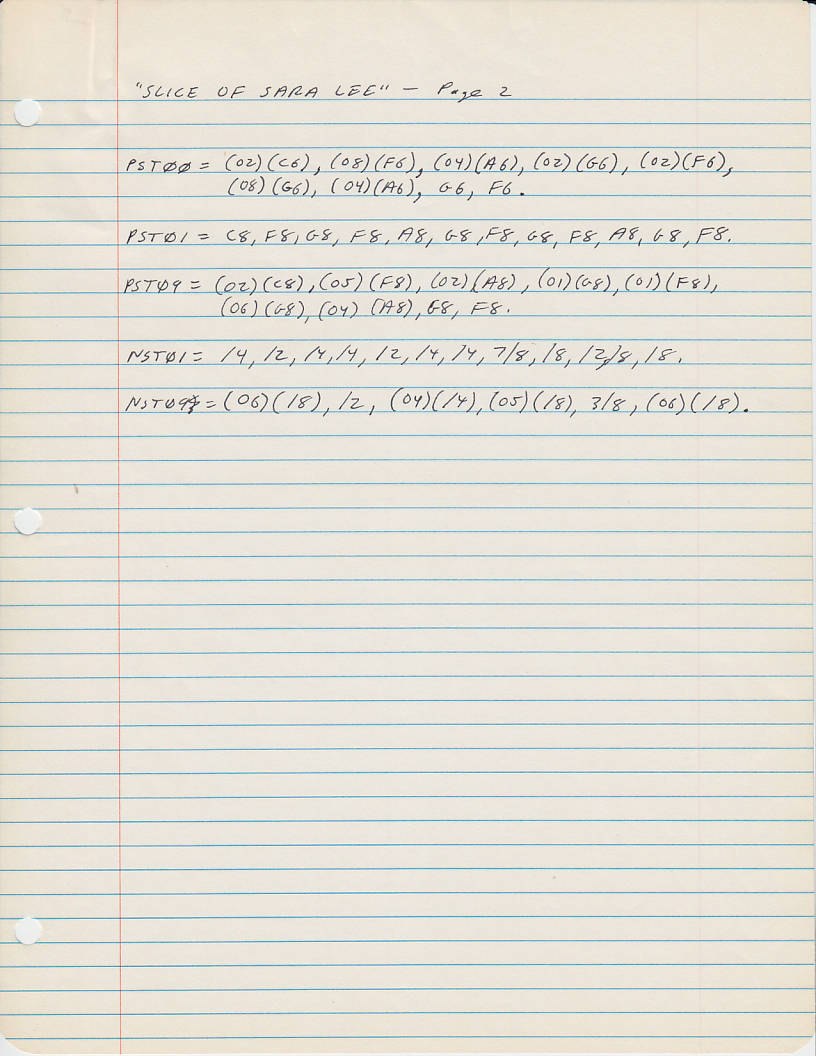 "SLICE OF SARA LEE" - Page 2
PSTØØ = (02)(C6), (08)(F6), (04)(A6), (02)(G6), (02)(F6),
(08)(G6), (04)(A6), G6, F6.
PSTØ1 = C8, F8, G8, F8, A8, G8, F8, G8, F8, A8, G8, F8.
PSTØ9 = (02)(C8), (05)(F8), (02)(A8), (01)(G8), (01)(F8),
(06)(G8), (04) (A8), G8, F8.
NSTØ1 = /4, /2, /4, /4, /2, /4, /4, 7/8, /8, /2, /8, /8.
NSTØ9 = (06)(/8), /2, (04)(/4), (05)(/8), 3/8, (06)(/8).